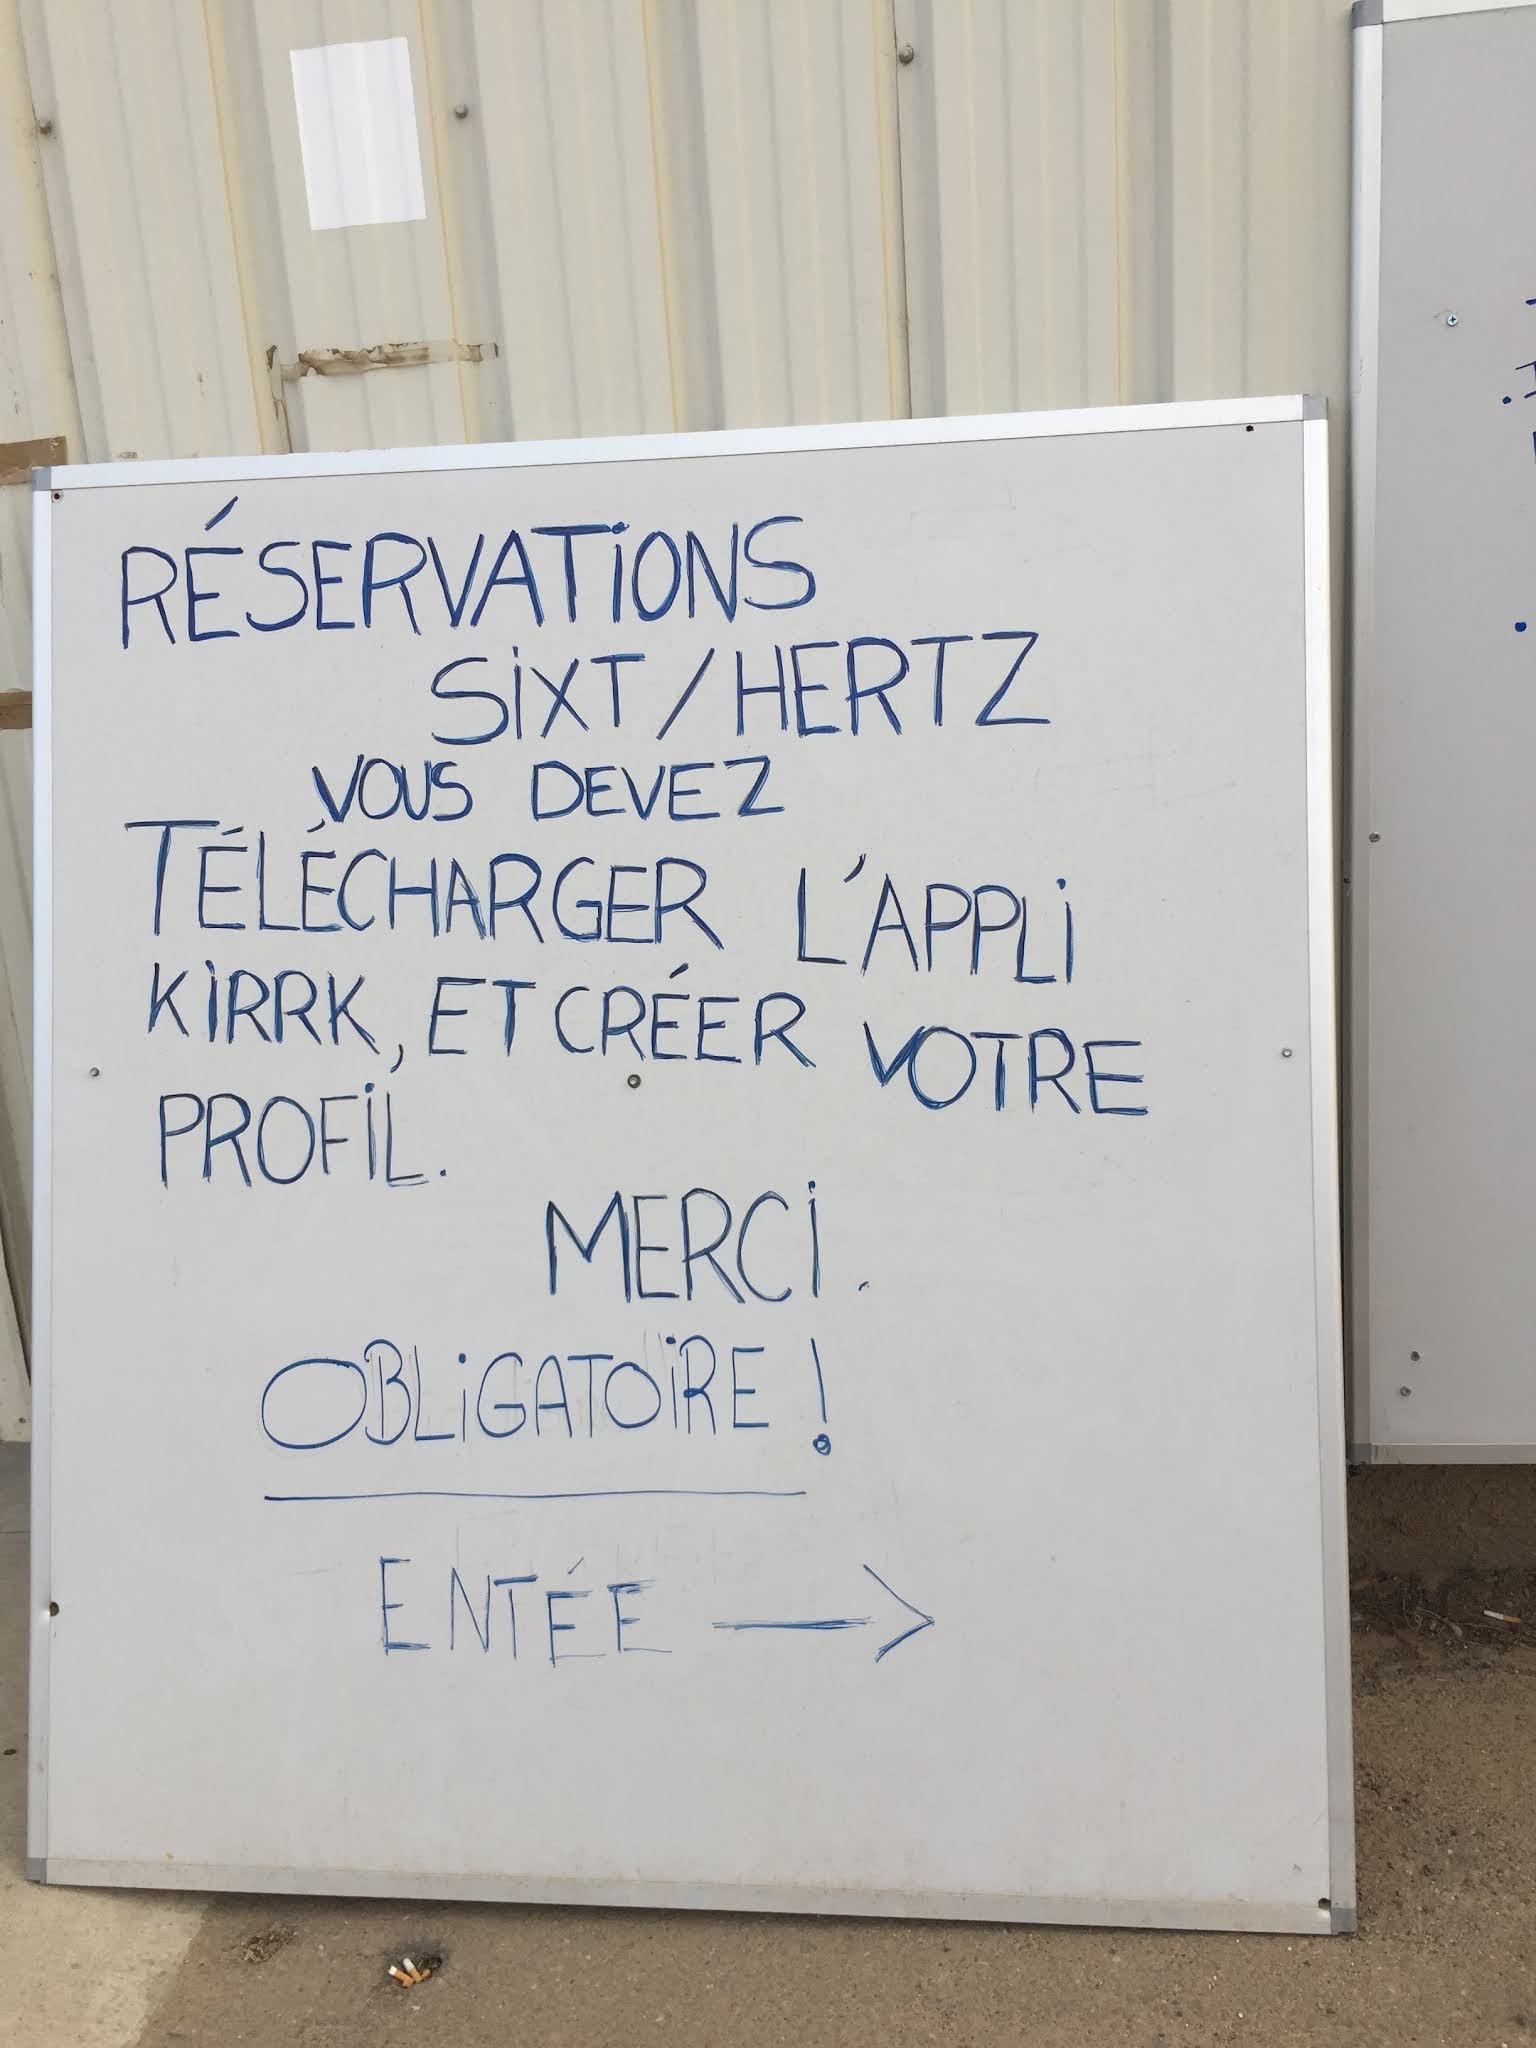 RÉSERVATIONS
SIXT / HERTZ
VOUS DEVEZ
TÉLÉCHARGER L'APPLI
KIRRK, ET CRÉER VOTRE
PROFIL.
MERCI.
OBLIGATOIRE !
ENTÉE →